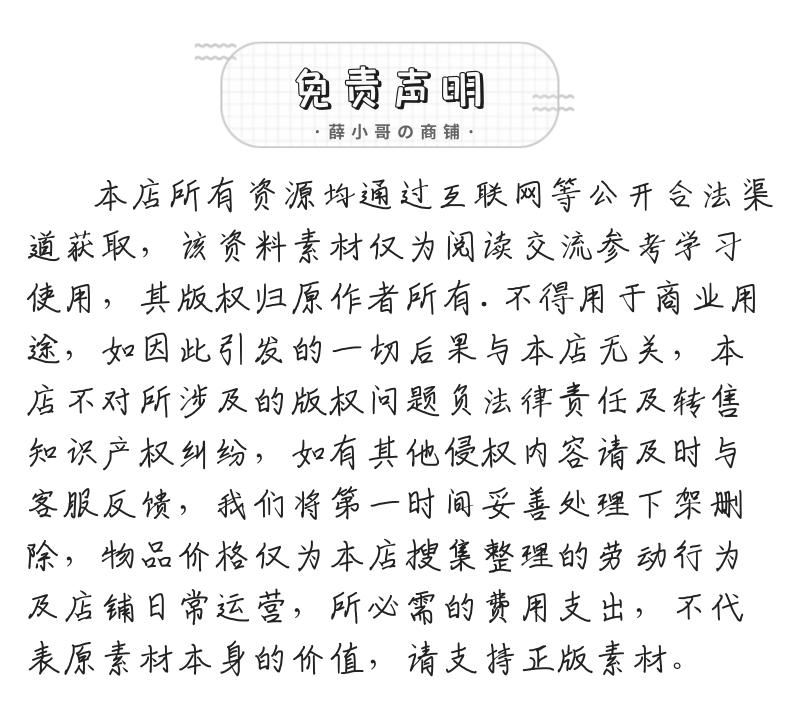 免责声明
·薛小哥の商铺·
本店所有资源均通过互联网等公开合法渠
道获取，该资料素材仅为阅读交流参考学习
使用，其版权归原作者所有.不得用于商业用
途，如因此引发的一切后果与本店无关，本
店不对所涉及的版权问题负法律责任及转售
知识产权纠纷，如有其他侵权内容请及时与
客服反馈，我们将第一时间妥善处理下架删
除，物品价格仅为本店搜集整理的劳动行为
及店铺日常运营，所必需的费用支出，不代
表原素材本身的价值，请支持正版素材。